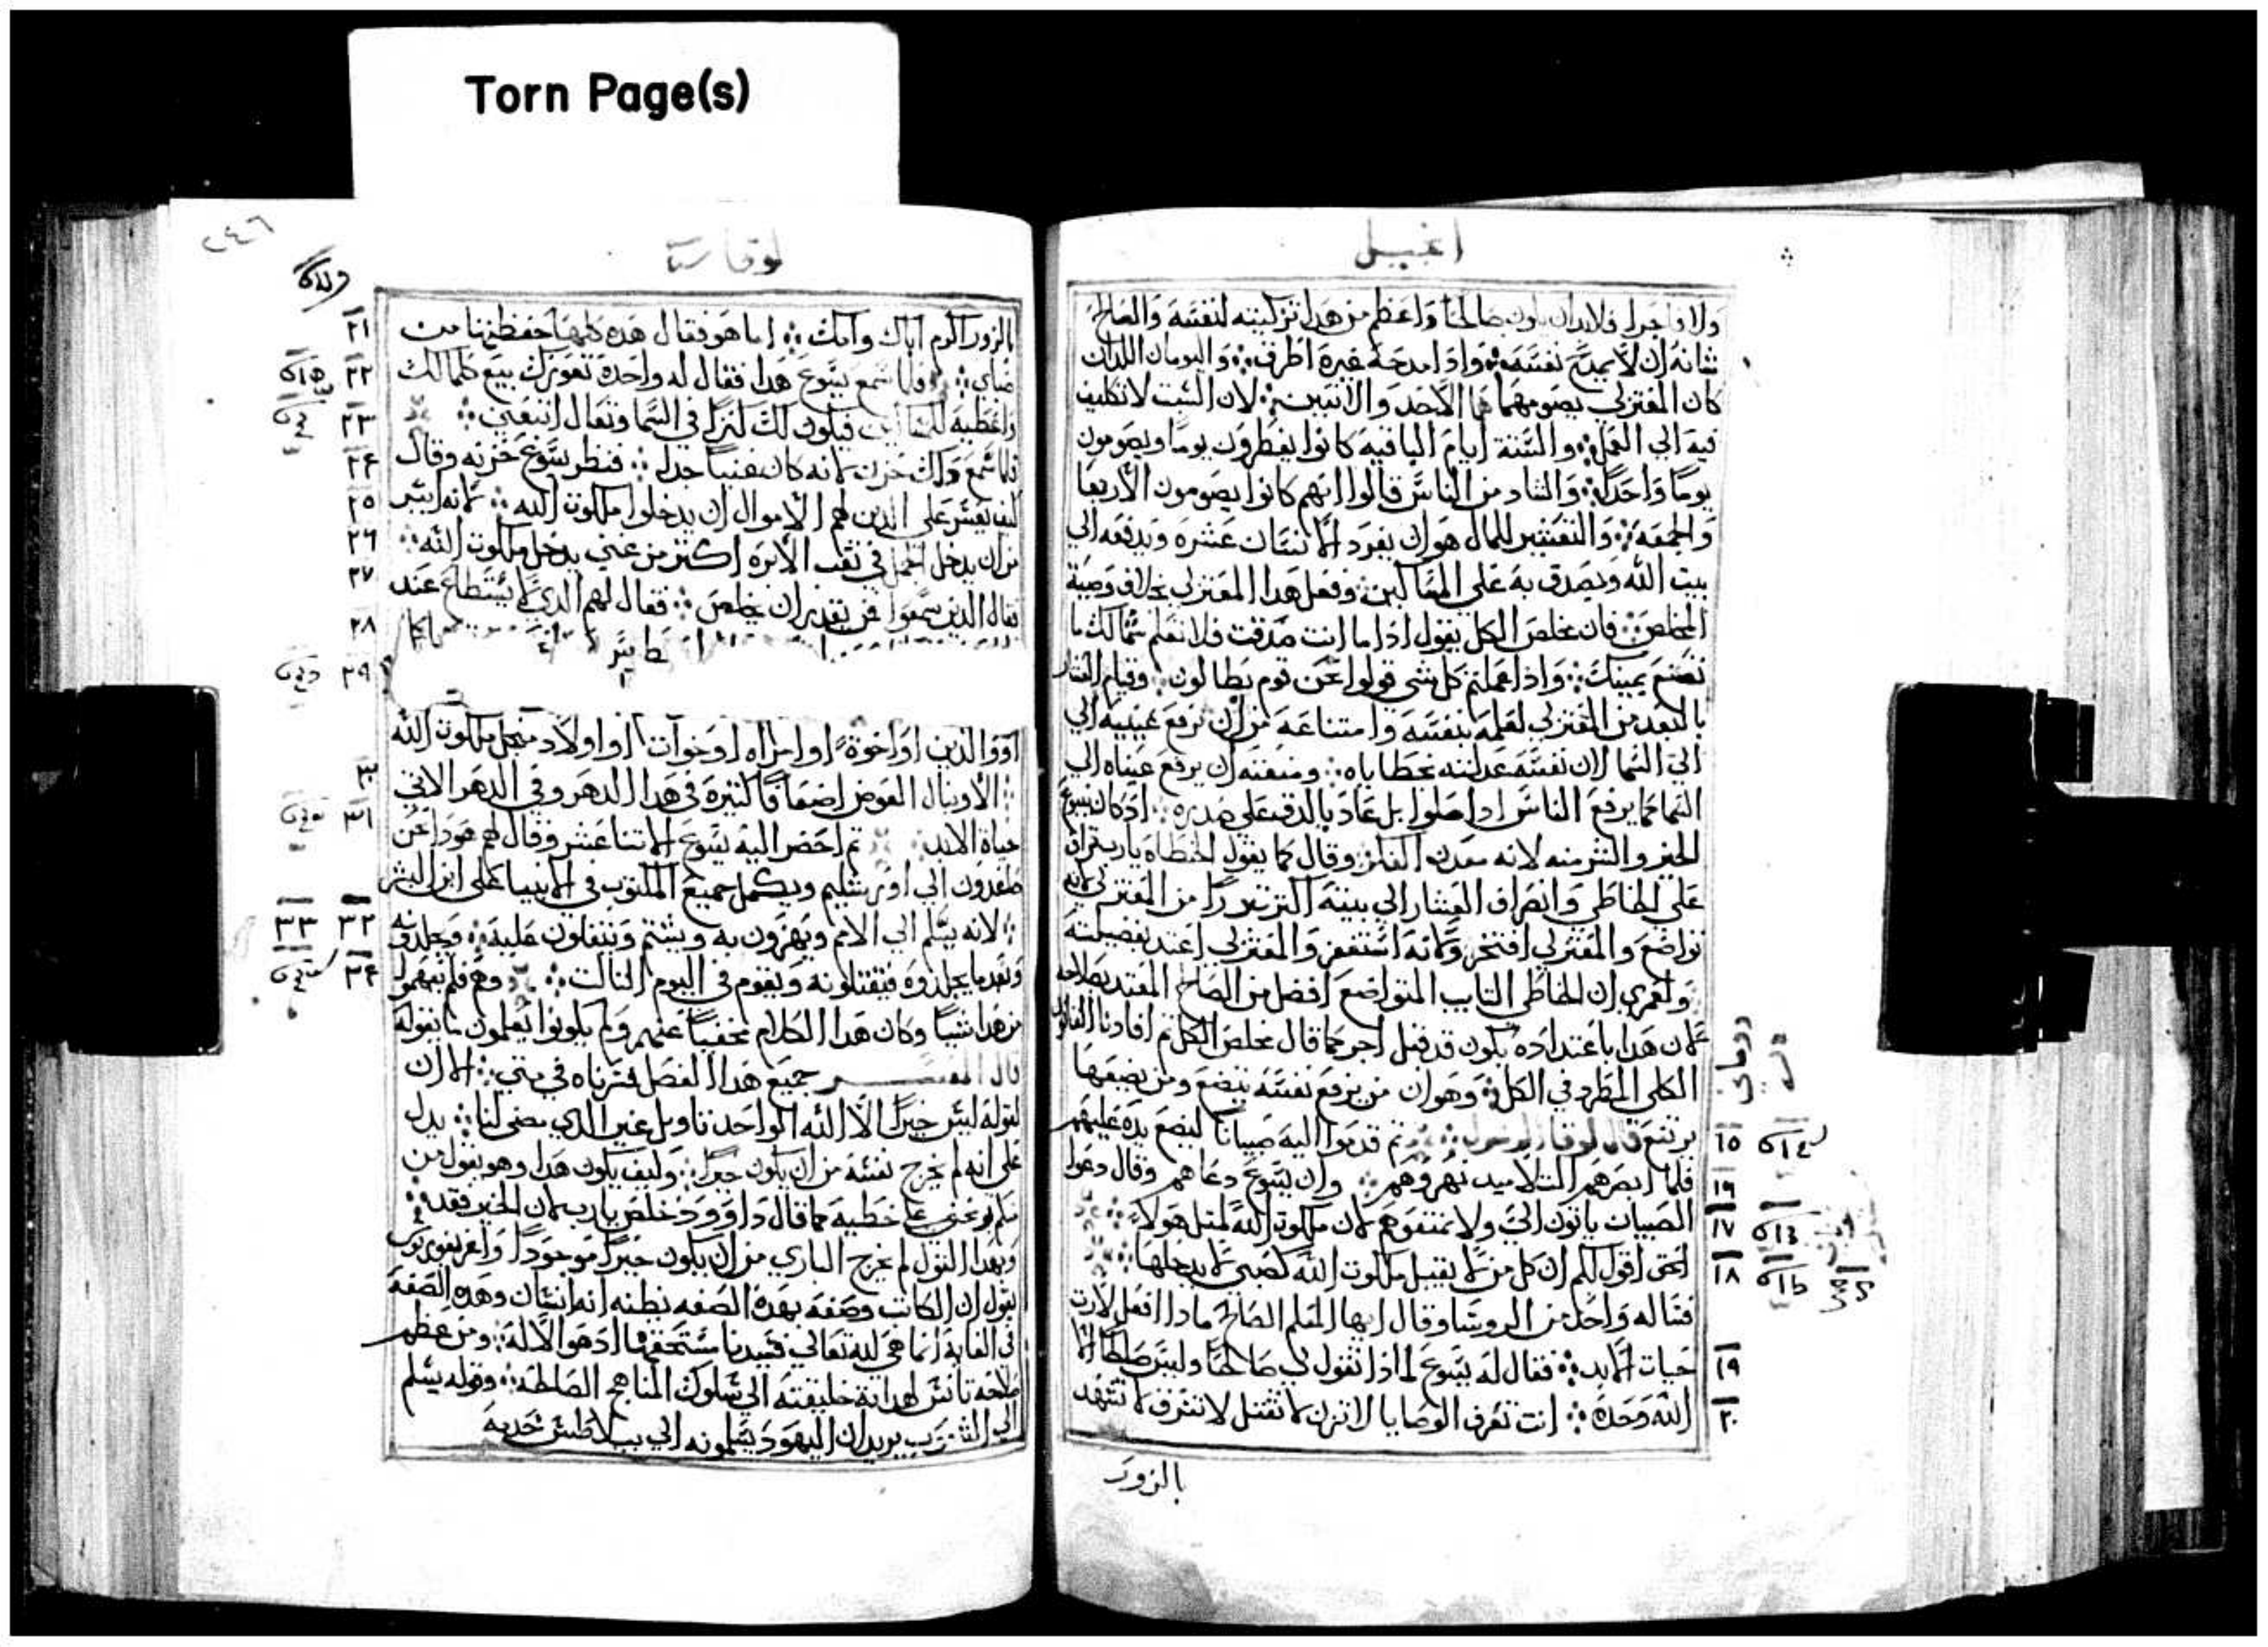 Torn Page(s)
انجيل
ولا واحدا فلابد ان يكون صالحا واعظم من هدا تزكيته لنفسه والصالح
شانه ان لا يمدح نفسه وادا مدحه غيره اطرف واليومان اللدان
كان المعتزلي يصومهما هما الاحد والاثنين لان السبت لا تكليف
فيه الي العمل والستة ايام الباقيه كانوا يفطرون يوما ويصومون
يوما واحدا والشاد من الناس قالوا انهم كانوا يصومون الاربعا
والجمعه والتعشير للمال هو ان يفرد الانسان عشره ويدفعه الي
بيت الله ويصدق به علي المساكين وفعل هدا المعتزلي بخلاف وصية
المخلص فان مخلص الكل يقول ادا ما انت صدقت فلا تعلم شمالك ما
تصنع يمينك وادا عملتم كل شي قولوا نحن قوم بطالون وقيام العشار
بالبعد من المعتزلي لعلمه بنفسه وامتناعه من ان يرفع عينيه الي
الي السما لان نفسه عدلته بخطاياه ومنعته ان يرفع عيناه الي
السما كما يرفع الناس ادا صلوا بل عاد بالدق علي صدره اد كان ينبوع
الخير والشر منه لانه معدن الفكر وقال كما يقول الخطاه يارب تراف
علي الخاطي وانصراف العشار الي بيته اكثر تبررا من المعتزلي لانه
تواضع والمعتزلي افتخر ولانه استغفر والمعتزلي اعتد بفضيلته
ولعمري ان الخاطي التايب المتواضع افضل من الصالح المعتد بصلاحه
لان هدا باعتداده يكون قد قبل اجر كما قال مخلص الكل ثم افادنا القانون
الكلي المطرد في الكل وهو ان من يرفع نفسه يتضع ومن يضعها
يرتفع قال لوقا الرسول ثم قدموا اليه صبيانا ليضع يده عليهم
فلما ابصرهم التلاميد نهروهم وان يسوع دعاهم وقال دعوا
الصبيان ياتون الي ولا تمنعوهم لان ملكوت الله لمثل هولا
الحق اقول لكم ان كل من لا يقبل ملكوت الله كصبي لا يدخلها
فساله واحد من الروسا وقال ايها المعلم الصالح مادا افعل لارت
حيات الابد فقال له يسوع لمادا تقول لي صالحا وليس صالحا الا
الله وحده انت تعرف الوصايا لا تزن لا تقتل لا تسرق لا تشهد
بالزور
١٥
١٦
١٧
١٨
١٩
٢٠
٢٤٦
لوقا
بالزور اكرم اباك وامك اما هو فقال هده كلها حفظتها من
صباي فلما سمع يسوع هدا فقال له واحدة تعوزك بيع كلما لك
واعطيه للمساكين فيكون لك كنزا في السما وتعال اتبعني
فلما سمع دلك حزن لانه كان غنيا جدا فنظر يسوع حزنه وقال
كيف يعسر علي الدين لهم الاموال ان يدخلوا ملكوت الله لانه ايسر
من ان يدخل الجمل في ثقب الابره اكثر من غني يدخل ملكوت الله
فقال الدين سمعوا فمن يقدر ان يخلص فقال لهم الدي لا يستطاع عند
او والدين او اخوة او امراه او اخوات او اولاد من اجل ملكوت الله
الا وينال العوض اضعافا كثيره في هدا الدهر وفي الدهر الاتي
حياة الابد ثم احضر اليه يسوع الاتناعشر وقال لهم هودا نحن
صاعدون الي اورشليم ويكمل جميع المكتوب في الانبيا علي ابن البشر
لانه يسلم الي الامم ويهزون به ويشتم ويتفلون عليه ويجلدونه
وبعد ما يجلدوه فيقتلونه ويقوم في اليوم التالت وهم فلم يفهموا
من هدا شيا وكان هدا الكلام مخفيا عنهم ولم يكونوا يعلمون ما يقوله
قال المفسر جميع هدا الفصل فسرناه في متي الا ان
لقوله ليس خيرا الا الله الواحد تاويل غير الدي مضي لنا يدل
علي انه لم يخرج نفسه من ان يكون خيرا وكيف يكون هدا وهو يقول من
منكم يوبخني علي خطيه كما قال داوود خلص يارب لان الخير فقد
وبهدا القول لم يخرج الباري من ان يكون خيرا موجودا واغريغوريوس
يقول ان الكاتب وصفه بهده الصفه بظنه انه انسان وهده الصفه
في الغاية انما هي لله تعالي فسيدنا مستحقها اد هو الاله ومن عظم
صلاحه تانس لهداية خليقته الي سلوك المناهج الصالحه وقوله يسلم
الي الشعوب يريد ان اليهود يسلمونه الي بيلاطس
٢١
٢٢
٢٣
٢٤
٢٥
٢٦
٢٧
٢٨
٢٩
٣٠
٣١
٣٢ ٣٣
٣٤